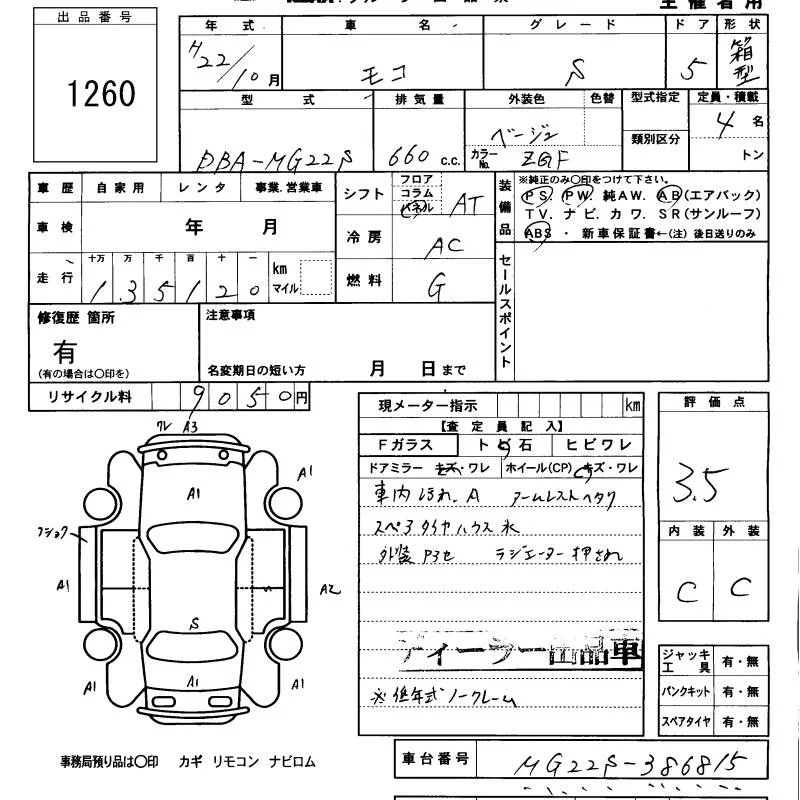 出品番号
1260
年式 車名 グレード ドア 形状
H22/10月 モコ S 5 箱型
型式 排気量 外装色 色替 型式指定 定員・積載
類別区分
DBA-MG22S 660 c.c. ベージュ 4名
カラーNo. ZQF トン
車歴 自家用 レンタ 事業.営業車
シフト フロア コラム パネル AT
装備品 ※純正のみ〇印をつけて下さい。
PS. PW. 純AW. AB(エアバック)
TV. ナビ. カワ. SR(サンルーフ)
ABS・新車保証書←(注)後日送りのみ
車検 年 月
冷房 AC
走行 十万 万 千 百 十 一 km マイル
1 3 5 1 2 0
燃料 G
セールスポイント
修復歴 箇所
有
(有の場合は〇印を)
注意事項
名変期日の短い方 月 日まで
リサイクル料 9 0 5 0 円
現メーター指示 km
【査定員記入】
Fガラス トビ石 ヒビワレ
ドアミラー キズ・ワレ ホイール(CP) キズ・ワレ
車内 汚れ.A アームレストヘタリ
スペアタイヤハウス 水
外装 ラジエーター押され
ディーラー出品車
※低年式ノークレーム
評価点
3.5
内装 外装
C C
ジャッキ工具 有・無
パンクキット 有・無
スペアタイヤ 有・無
ワレ A3
A1
A1
フショク
A1
A2
S
A1
A1
A1
事務局預り品は〇印 カギ リモコン ナビロム
車台番号 MG22S-386815